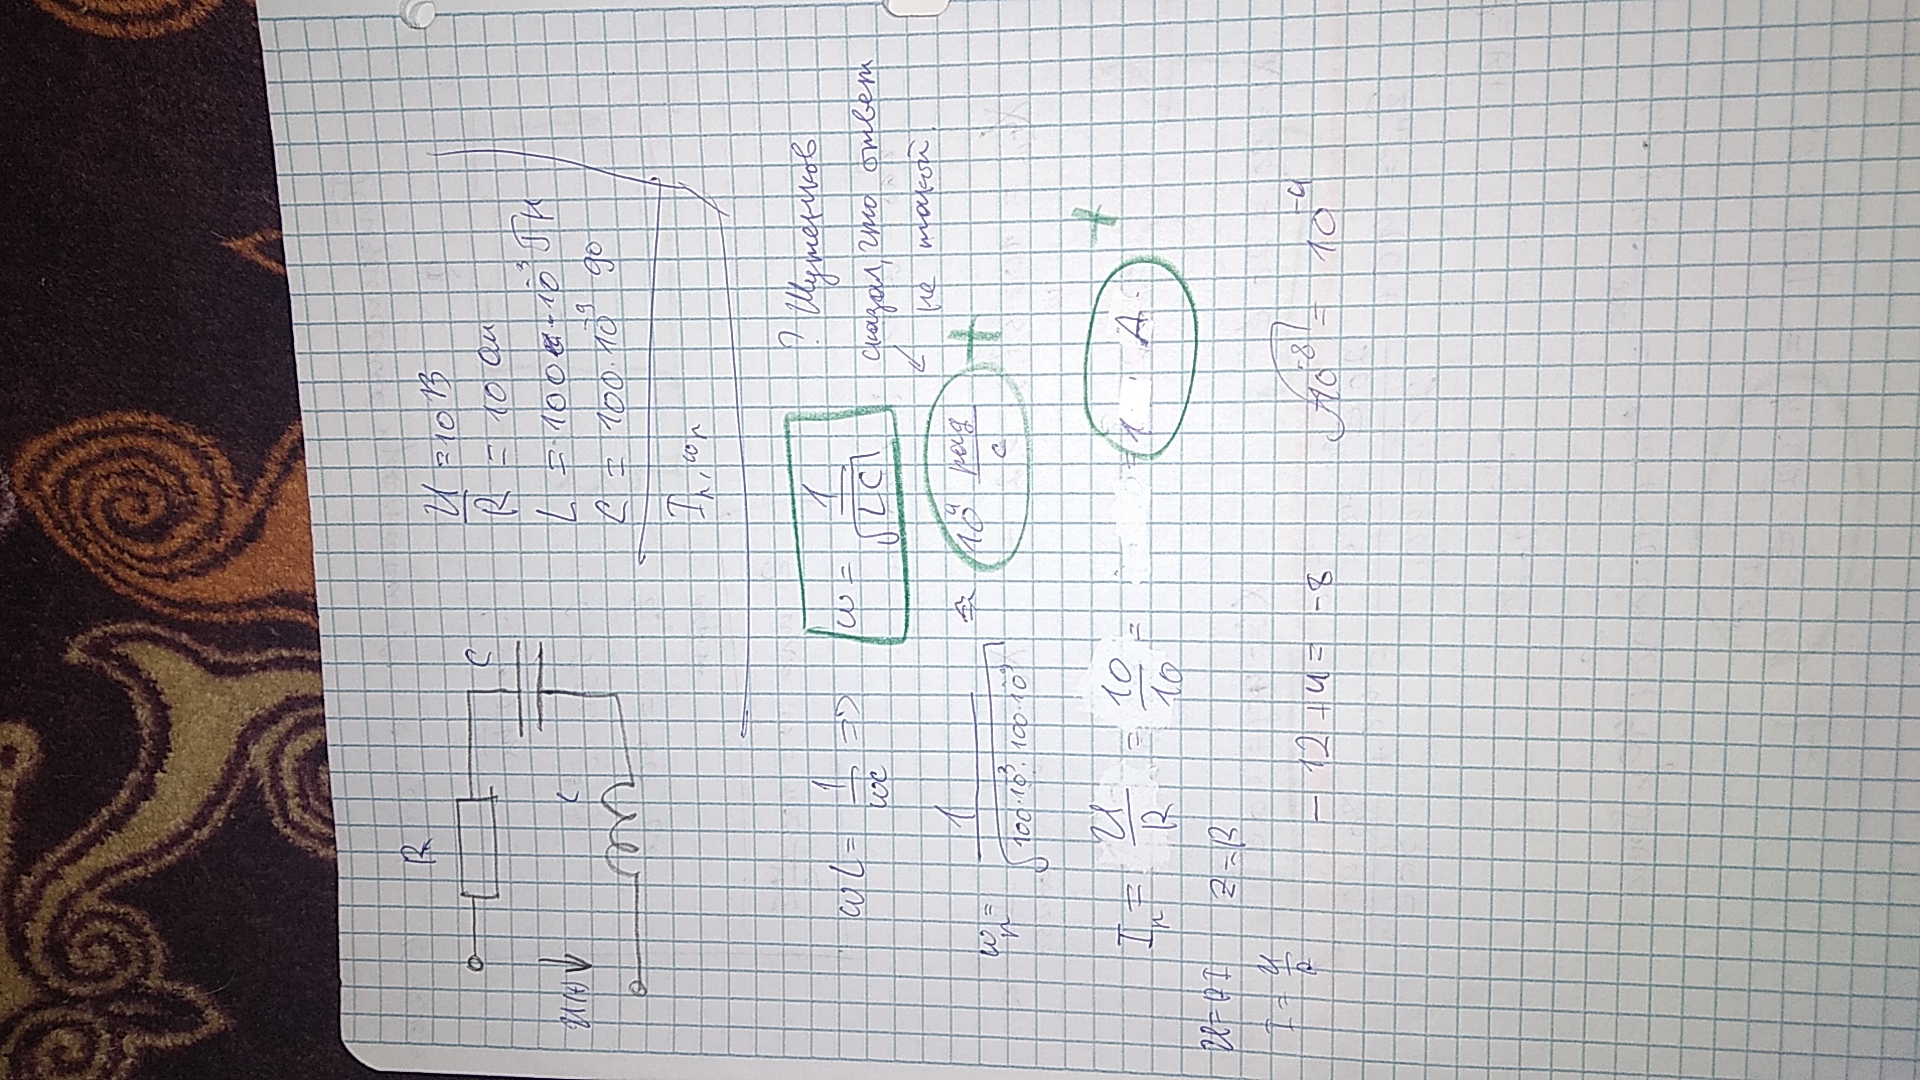 R
C
U(t)
L
U = 10 В
R = 10 Ом
L = 100 · 10⁻³ Гн
C = 100·10⁻⁹ Ф
Iр, ωр
ωL = 1/ωC => ω = 1/√LC
? Шутенков
сказал, что ответ
не такой.
ωр = 1/√100·10⁻³·100·10⁻⁹ = 10⁴ рад/с +
Iр = U/R = 10/10 = = 1 А +
U=RI Z=R
I = U/R
- 12 + 4 = -8 √10⁻⁸ = 10⁻⁴